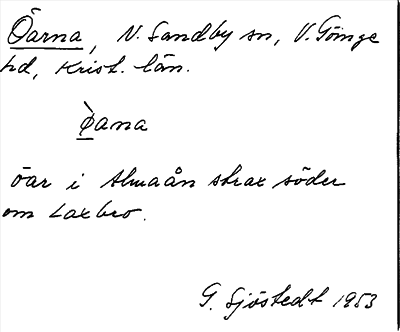 Öarna, N. Sandby sn, V. Göinge
hd, Krist. län.
ø̀ana
öar i Almaån strax söder
om Laxbro.
G. Sjöstedt 1953